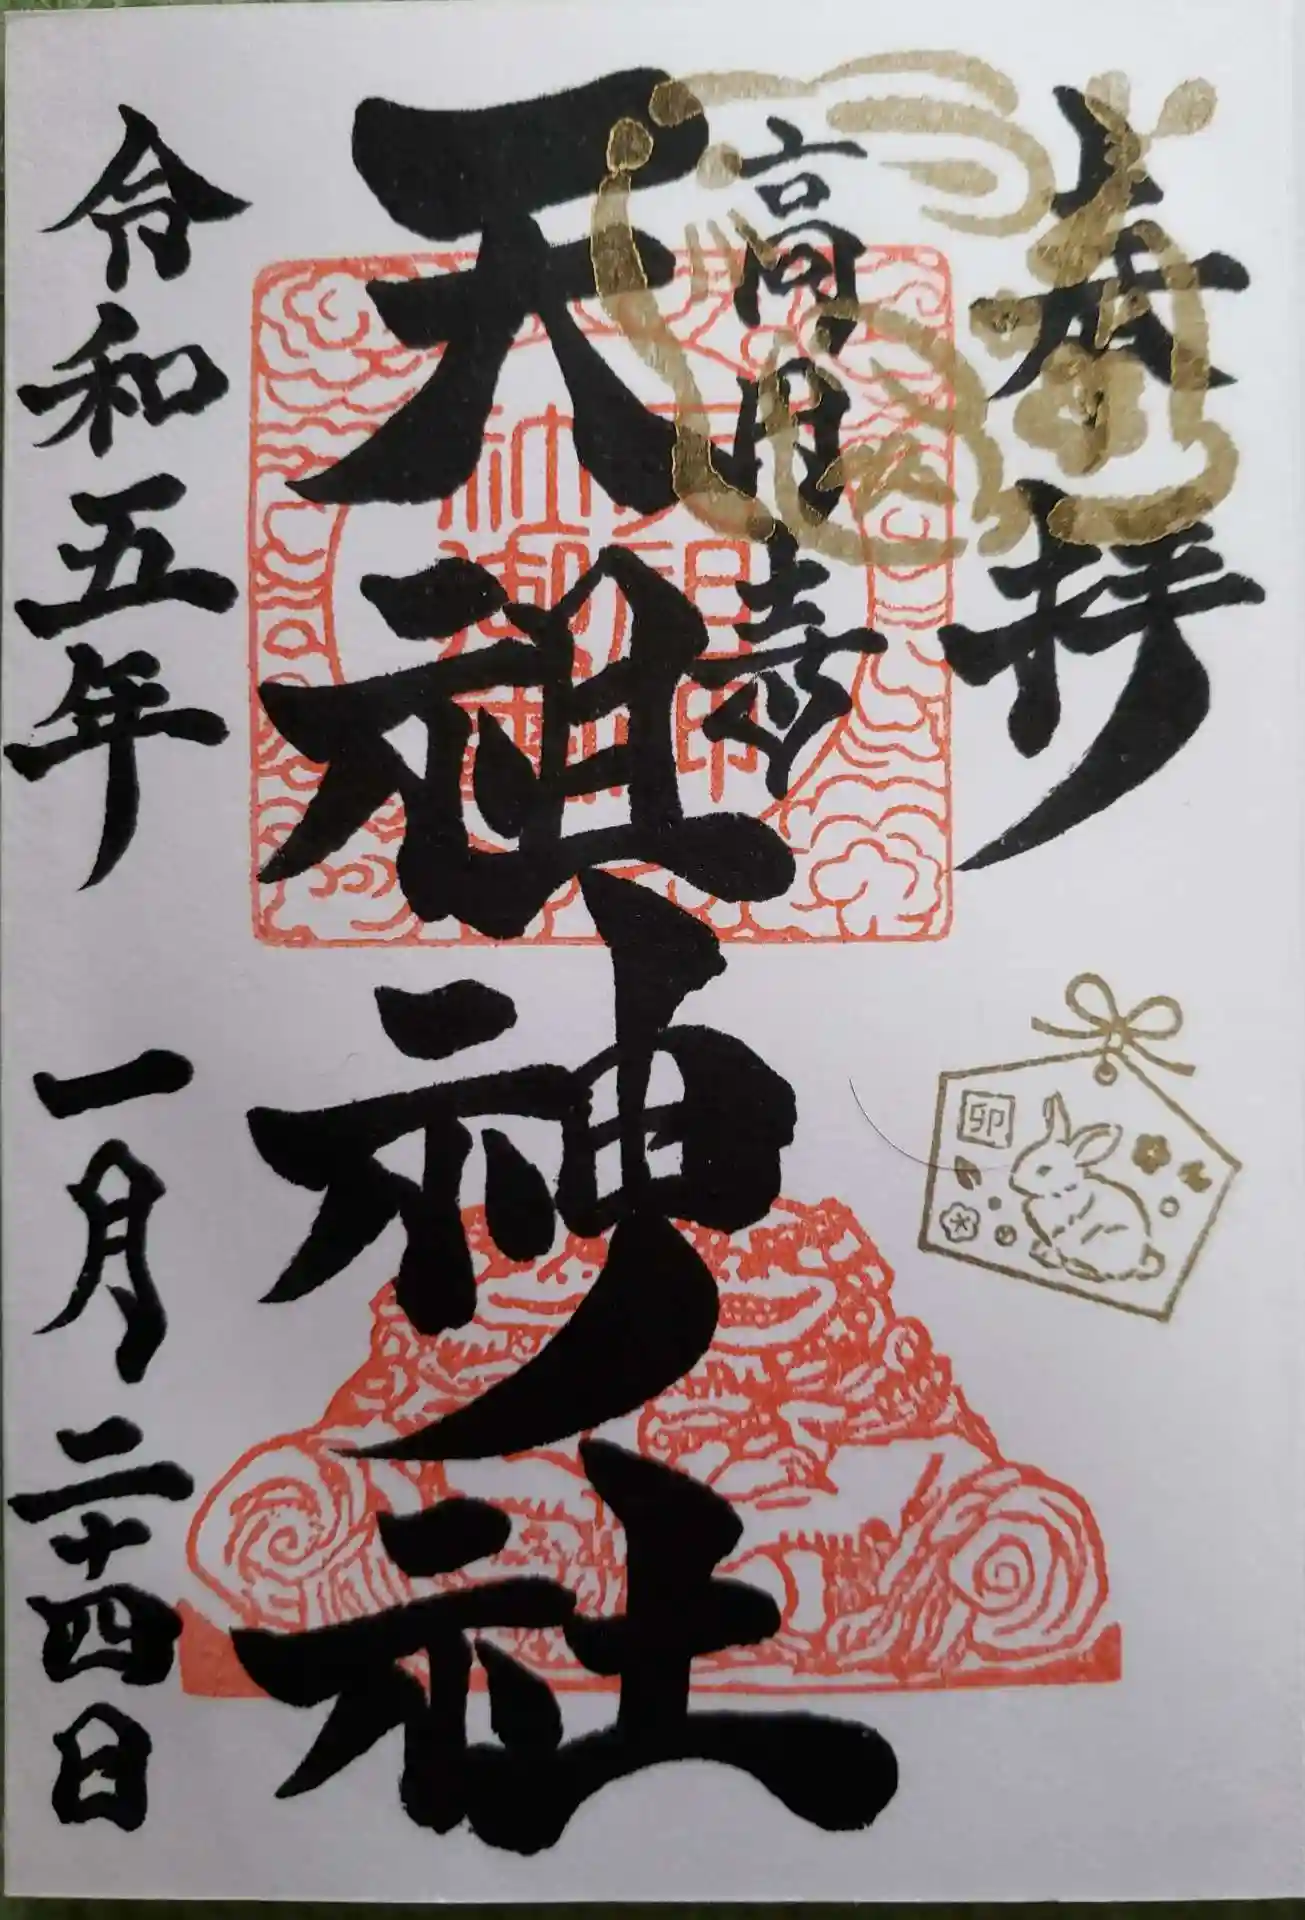 奉拝
高円寺
天祖神社
令和五年 一月二十四日
卯